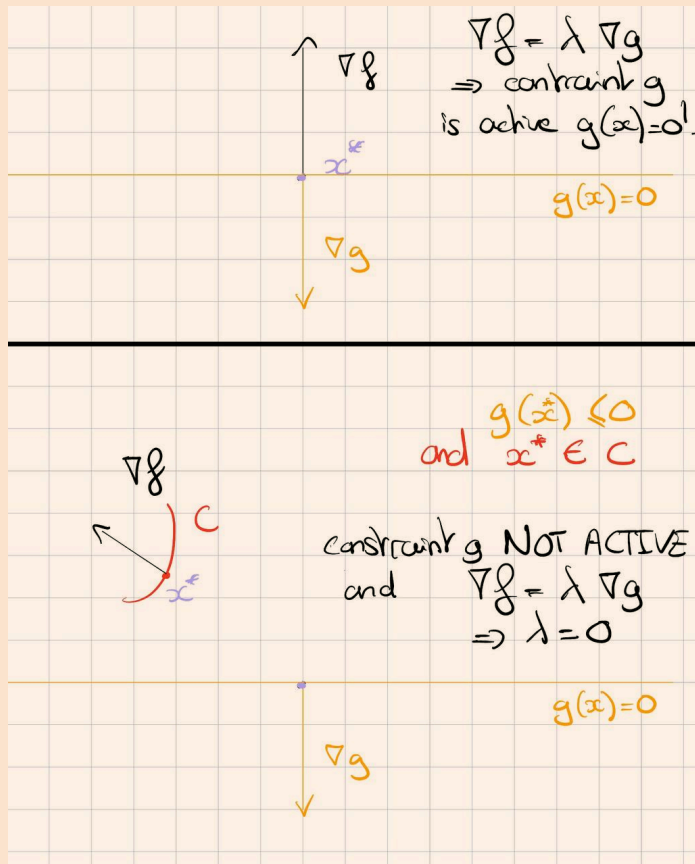 ∇f = λ ∇g
∇f
⇒ contraint g
is active g(x)=0!
x*
g(x)=0
∇g
g(x*) ≤0
and x* ∈ C
∇f
C
constraint g NOT ACTIVE
x*
and ∇f = λ ∇g
⇒ λ=0
g(x)=0
∇g